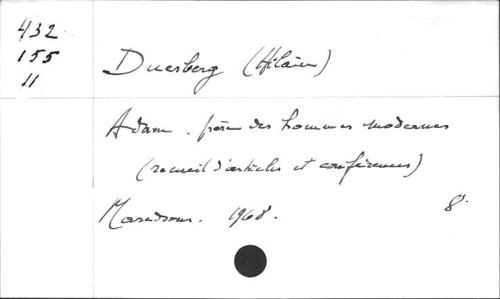 432
155
11
Duesberg (Hilaire)
Adam. père des hommes modernes
(recueil d'articles et conférences)
Maredsous. 1968.
8°